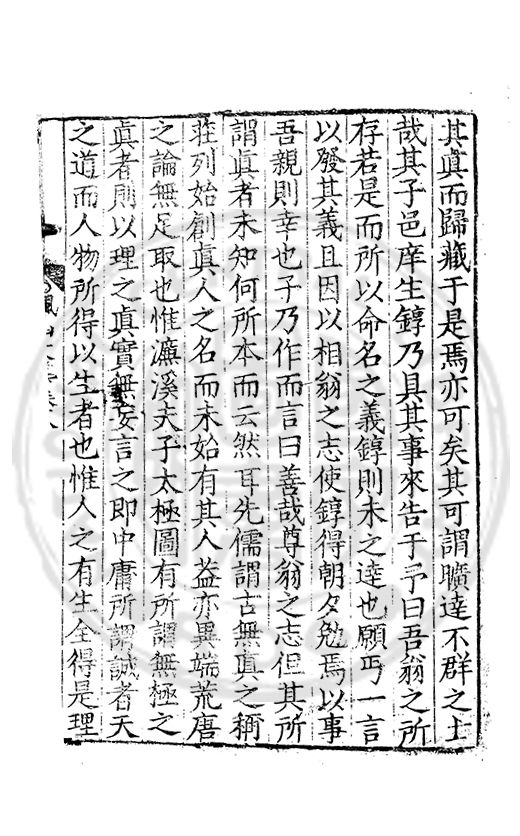 其真而歸藏于是焉亦可矣其可謂曠達不群之士
哉其子邑庠生錞乃具其事來告于予曰吾翁之所
存若是而所以命名之義錞則未之達也願丐一言
以發其義且因以相翁之志使錞得朝夕勉焉以事
吾親則幸也予乃作而言曰善哉尊翁之志但其所
謂真者未知何所本而云然耳先儒謂古無真之稱
莊列始創真人之名而未始有其人益亦異端荒唐
之論無足取也惟濂溪夫子太極圖有所謂無極之
真者則以理之真實無妄言之即中庸所謂誠者天
之道而人物所得以生者也惟人之有生全得是理